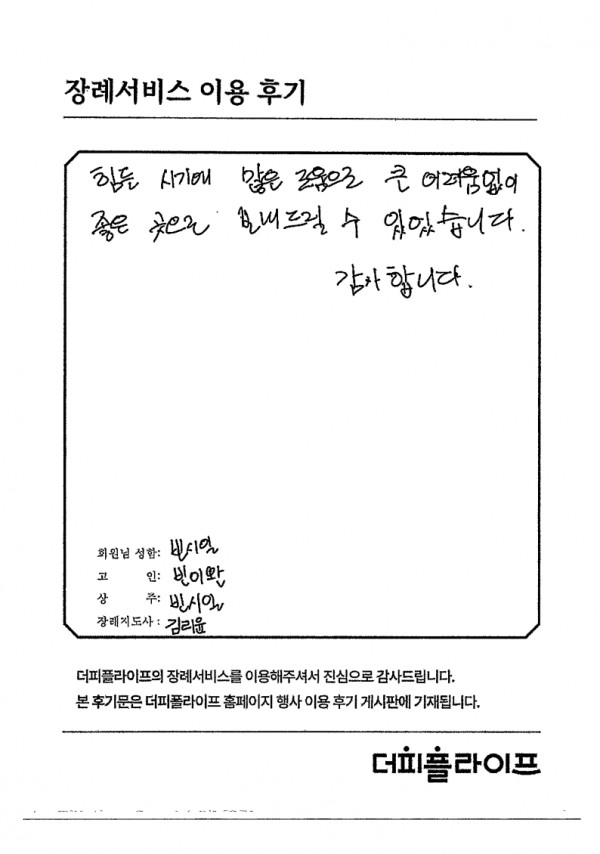 장례서비스 이용 후기
힘든 시기에 많은 도움으로 큰 어려움없이
좋은 곳으로 보내드릴 수 있었습니다.
감사합니다.
회원님 성함: 빈시일
고 인: 빈이완
상 주: 빈시일
장례지도사 : 김리윤
더피플라이프의 장례서비스를 이용해주셔서 진심으로 감사드립니다.
본 후기문은 더피플라이프 홈페이지 행사 이용 후기 게시판에 기재됩니다.
더피플라이프